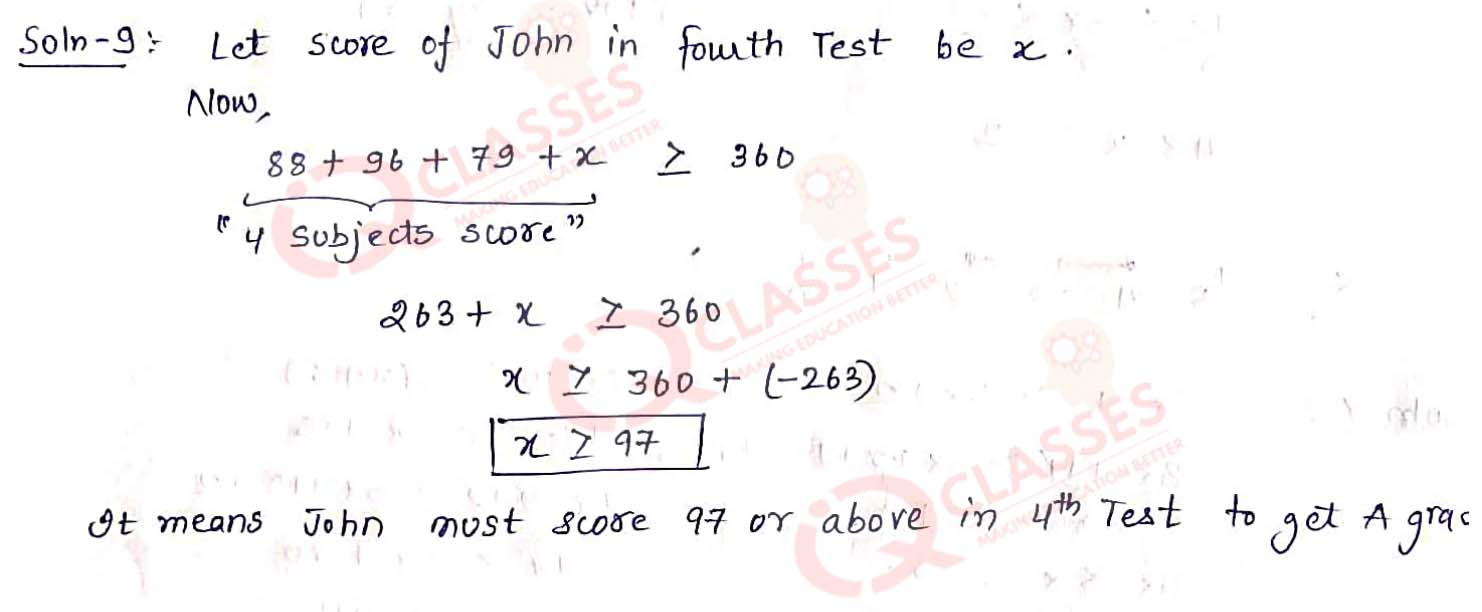 Soln-9:- Let score of John in fourth Test be x.
Now,
88 + 96 + 79 + x ≥ 360
"4 subjects score"
263 + x ≥ 360
x ≥ 360 + (-263)
x ≥ 97
It means John must score 97 or above in 4th Test to get A grad
IQ CLASSES
MAKING EDUCATION BETTER
IQ CLASSES
MAKING EDUCATION BETTER
IQ CLASSES
MAKING EDUCATION BETTER